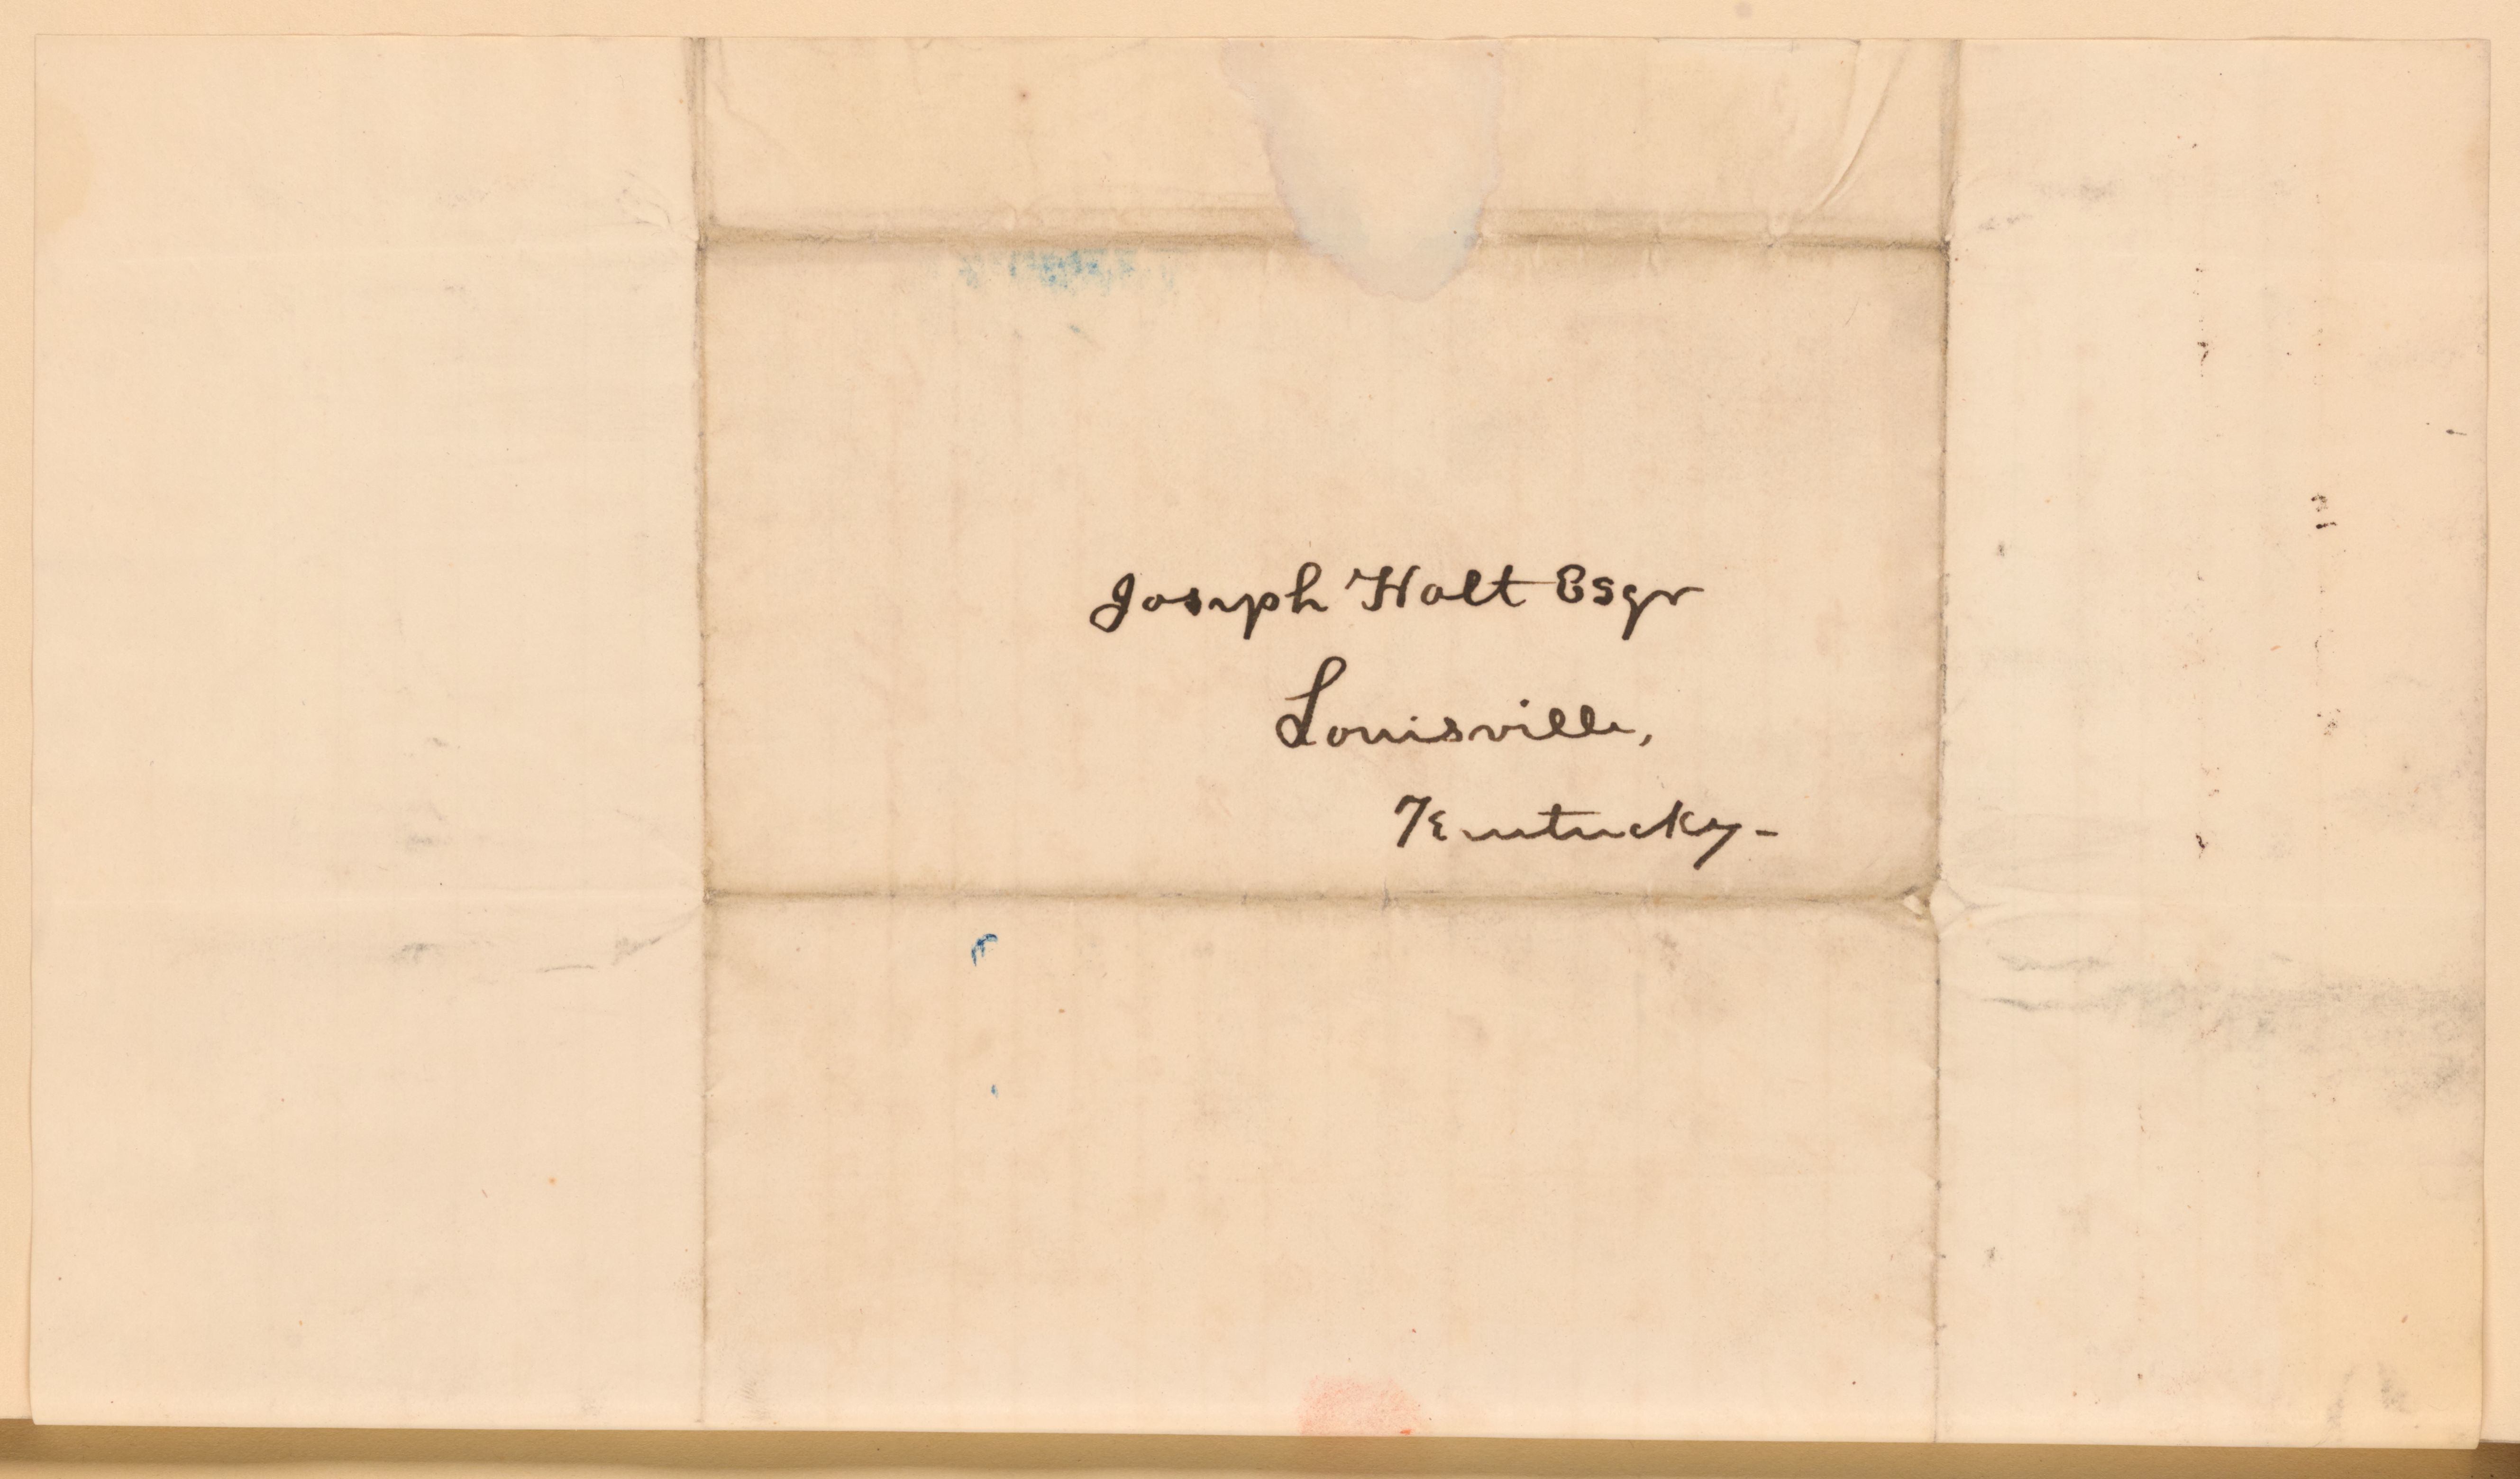 Joseph Holt Esqr
Louisville,
Kentucky-